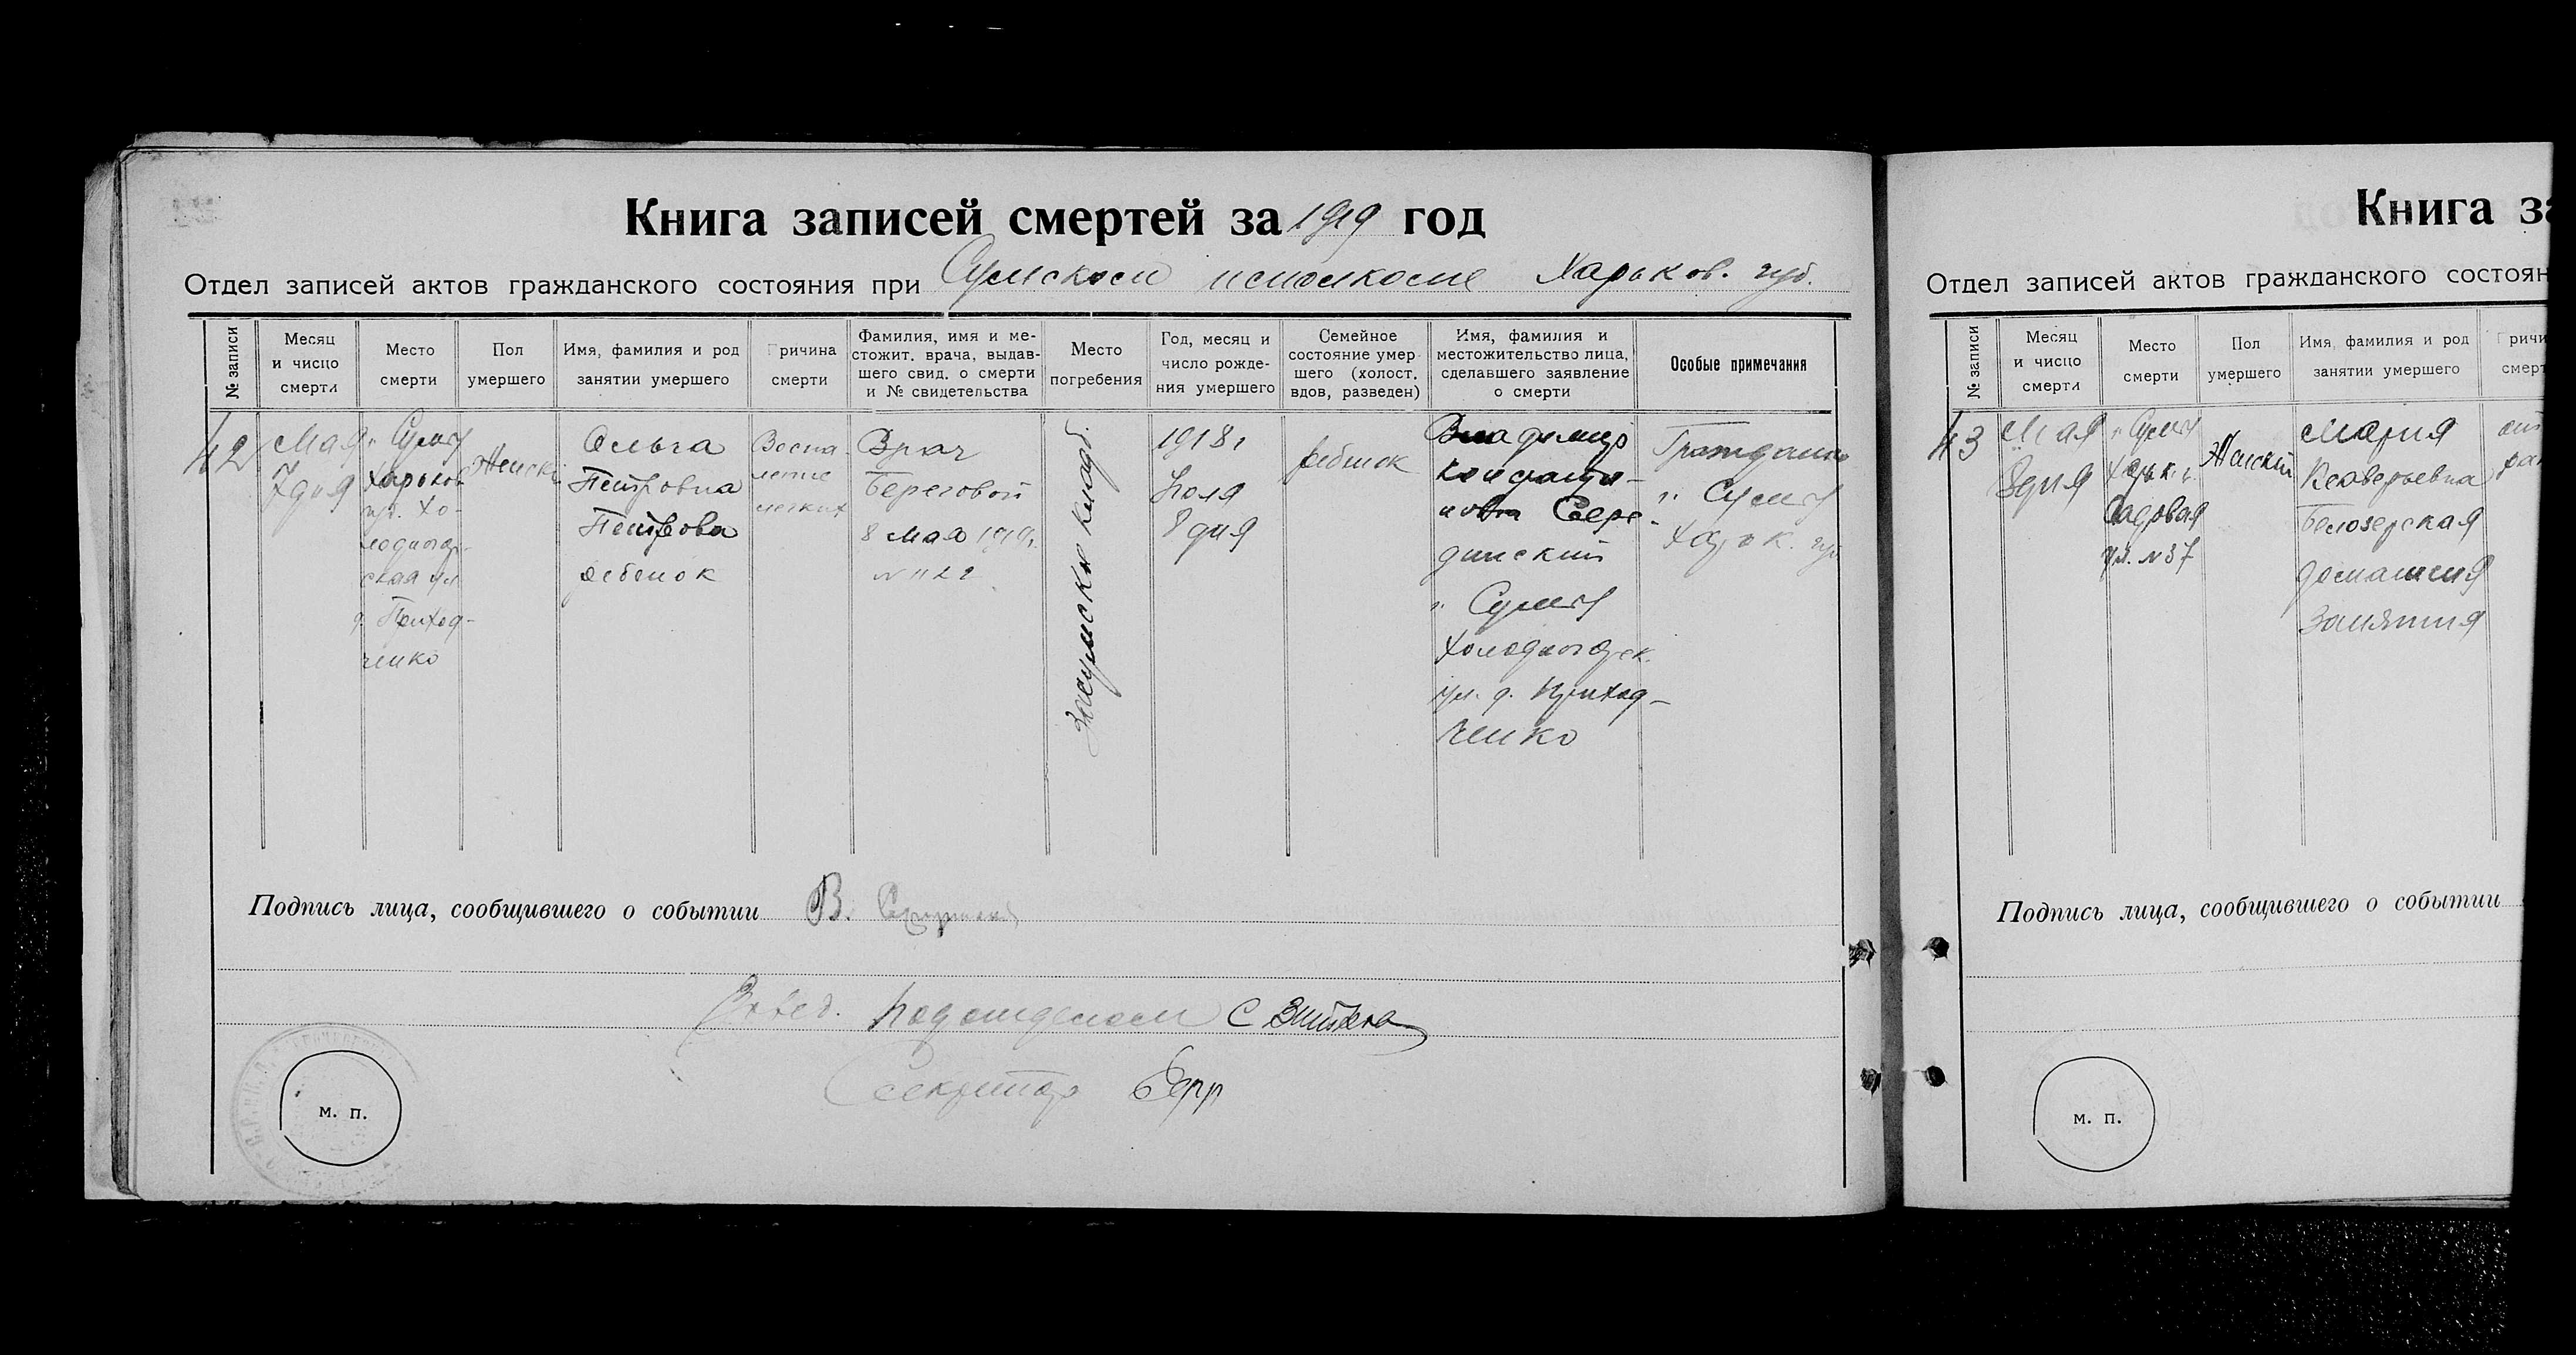 Книга записей смертей за 1919 год
Отдел записей актов гражданского состояния при Сумском исполкоме Харьков. губ.
№ записи
Месяц
и число
смерти
Место
смерти
Пол
умершего
Имя, фамилия и род
занятии умершего
Причина
смерти
Фамилия, имя и ме-
стожит. врача, выдав-
шего свид. о смерти
и № свидетельства
Место
погребения
Год, месяц и
число рожде-
ния умершего
Семейное
состояние умер-
шего (холост,
вдов, разведен)
Имя, фамилия и
местожительство лица,
сделавшего заявление
о смерти
Особые примечания
42
Мая
7 дня
г. Сумы
Харьков
губ. Хо-
лодногор-
ская ул
д. Приход-
ченко
Женски
Ольга
Петровна
Петрова
ребенок
Воспа-
ление
легких
Врач
Береговой
8 мая 1919г.
№ 1122
Засумское кладб.
1918 г
Июля
8 дня
ребенок
Владимир
Констан-
Сере-
динский
г. Сумы
Холодногорск.
ул. д. Приход-
ченко
Гражданка
г. Сумы
Харьк. губ
Подпись лица, сообщившего о событии В.
Завед. подотделом С
Секретарь
м. п.
Книга за
Отдел записей актов гражданского состоян
№ записи
Месяц
и число
смерти
Место
смерти
Пол
умершего
Имя, фамилия и род
занятии умершего
Причи
смерт
43
Мая
8 дня
г. Сумы
Харьк. г.
Садовая
ул. № 37
Женский
Мария
Ксаверьевна
Белозерская
домашния
занятия
Подпись лица, сообщившего о событии
м. п.